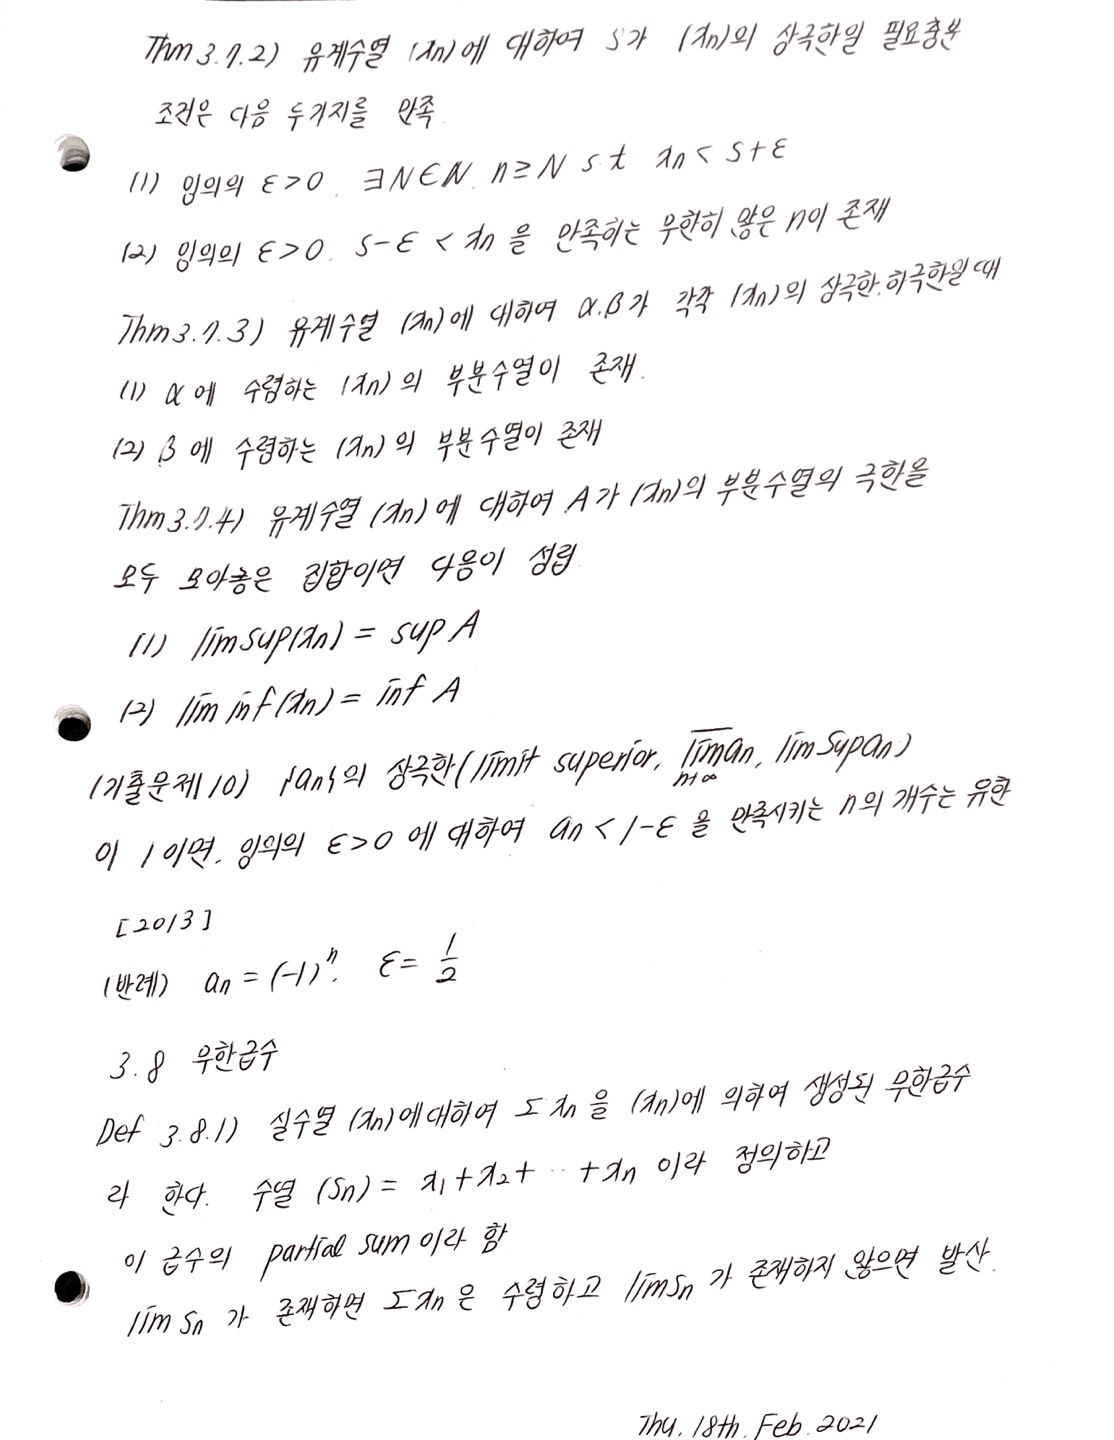 Thm 3.7.2) 유계수열 (xn)에 대하여 S가 (xn)의 상극한일 필요충분
조건은 다음 두가지를 만족
(1) 임의의 ε>0. ∃N∈N. n≥N s.t xn < S+ε
(2) 임의의 ε>0. S-ε < xn 을 만족하는 무한히 많은 n이 존재
Thm 3.7.3) 유계수열 (xn)에 대하여 α.β가 각각 (xn)의 상극한.하극한일 때
(1) α에 수렴하는 (xn)의 부분수열이 존재.
(2) β에 수렴하는 (xn)의 부분수열이 존재
Thm 3.7.4) 유계수열 (xn)에 대하여 A가 (xn)의 부분수열의 극한을
모두 모아놓은 집합이면 다음이 성립
(1) limsup(xn) = sup A
(2) lim inf(xn) = inf A
(기출문제10) {an}의 상극한(limit superior, \overline{lim}_{n→∞} an, limsup an)
이 1이면. 임의의 ε>0에 대하여 an < 1-ε 을 만족시키는 n의 개수는 유한
[2013]
(반례) an = (-1)^n. ε = 1/2
3.8 무한급수
Def 3.8.1) 실수열 (xn)에 대하여 Σxn을 (xn)에 의하여 생성된 무한급수
라 한다. 수열 (Sn) = x1+x2+ ·· +xn 이라 정의하고
이 급수의 partial sum이라 함
lim Sn 가 존재하면 Σxn은 수렴하고 limSn 가 존재하지 않으면 발산.
Thu. 18th. Feb. 2021